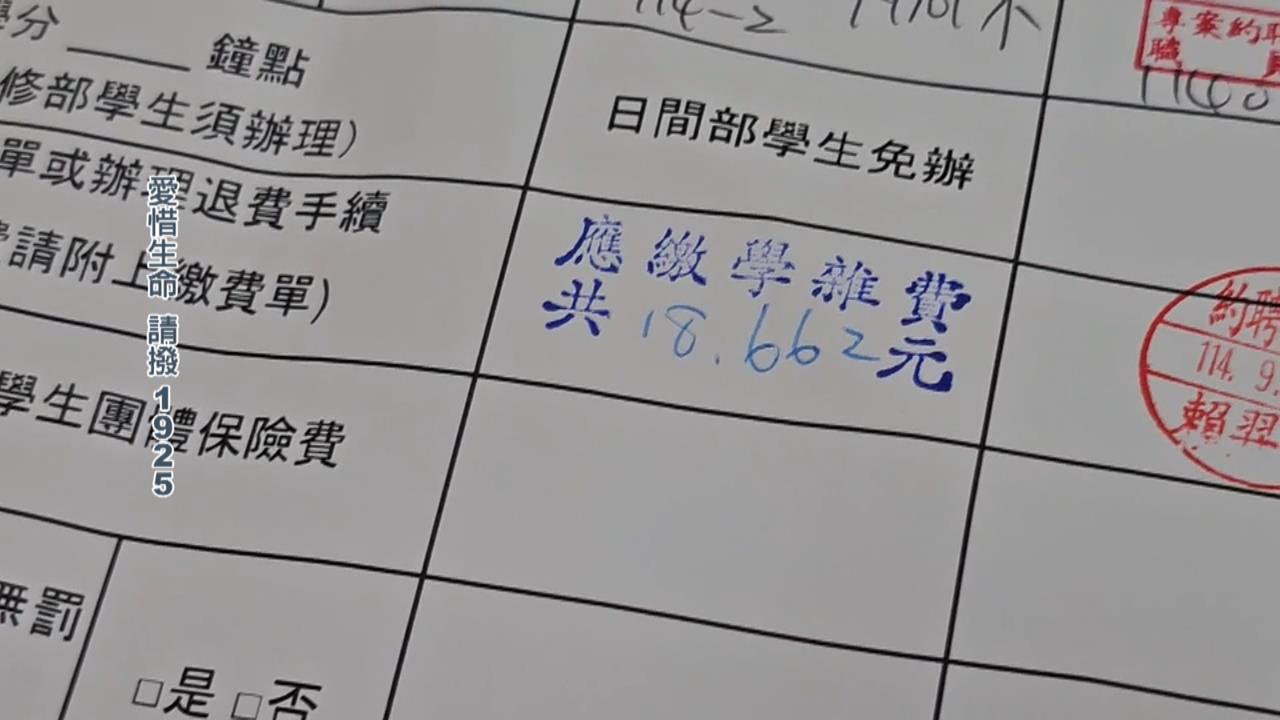 學分 ____ 鐘點
修部學生須辦理)
日間部學生免辦
單或辦理退費手續
請附上繳費單)
應繳學雜費
共 18.662元
學生團體保險費
無罰
□是 □否
專案約
職員
約聘
114. 9.
賴
愛惜生命 請撥 1925